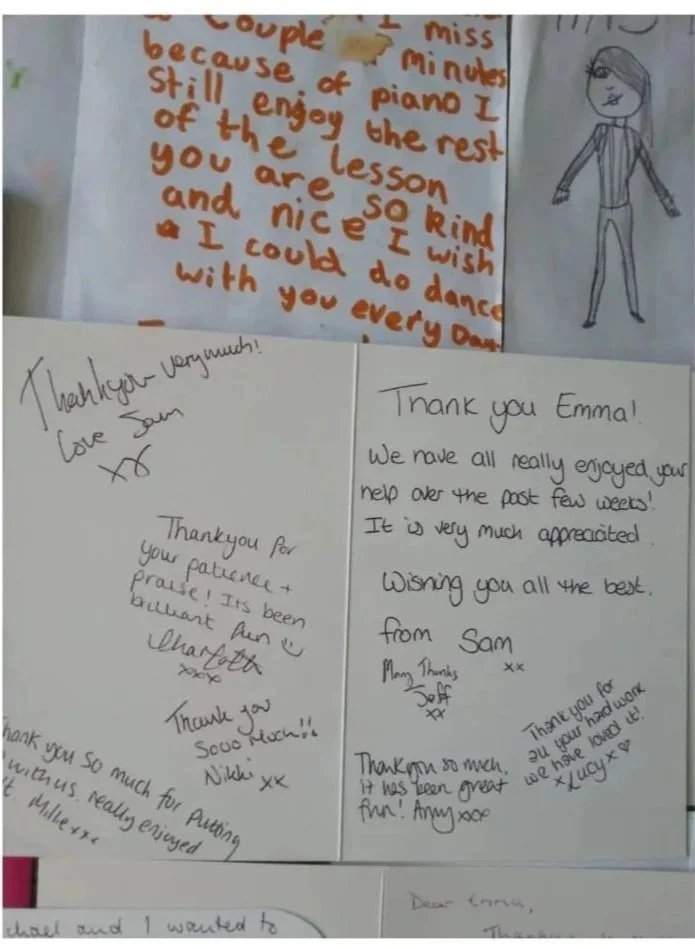 Couple I miss
minutes
because of piano I
still enjoy the rest
of the lesson
you are so kind
and nice I wish
I could do dance
with you every Day
Thankyou very much!
Love Sam
xx
Thankyou for
your patience +
praise! Its been
brilliant fun
Charlotte
xxx
Thank you
Sooo Much!!
Nikki xx
Thank you so much for putting
with us. really enjoyed
Millie xxx
Thank you Emma!
We have all really enjoyed your
help over the past few weeks!
It is very much appreciated.
Wishing you all the best.
from Sam
xx
Many Thanks
Jeff
xx
Thank you for
all your hard work
we have loved it!
x Lucy x
Thankyou so much,
it has been great
fun! Amy xxx
and I wanted to
Dear Emma,